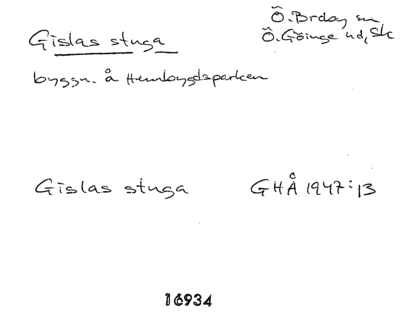 Gislas stuga
Ö. Broby sn
Ö. Göinge hd, Sk
byggn. å Hembygdsparken
Gislas stuga GHÅ 1947:13
16934